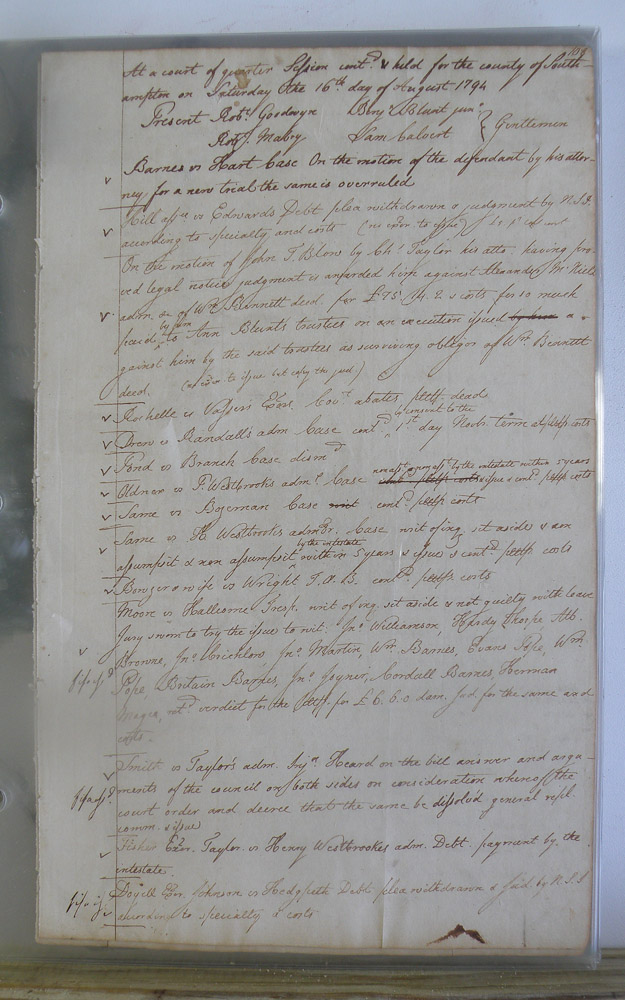 At a court of quarter Session contd. & held for the county of South-
ampton on Saturday the 16th day of August 1794
Present Robt. Goodwyn Benj. Blunt junr
Robt J. Mabry Sam Calvert } Gentlemen
Barnes vs Hart Case On the motion of the defendant by his attor-
ney for a new trial the same is overruled
Hill assee vs Edwards Debt plea withdrawn & judgment by N.S.I
according to specialty and costs (no error to issue)
On the motion of John T. Blow by Chs Taylor his atto. having pro-
ved legal notice judgment is awarded him against Alexander
adm. &c of Wm. Bennett decd. for £75. 14. 2 & costs for so much
by him
paid to Ann Blunts trustees on an execution issued a-
gainst him by the said trustees as surviving obligor of Wm Bennett
decd.
Rochelle vs Exors. abates pltff. dead
by consent to the
Drew vs Randall's adm Case contd 1st day Novr. term at pltffs costs
Pond vs Branch Case dismd
non asst & non asst by the intestate within 5 years
Oldner vs T. Westbrooks admr. Case & issue & contd. pltffs costs
Same vs Bozeman Case writ contd. pltffs costs
Same vs H. Westbrooks admor. Case writ of inq. set aside & non
by the intestate
assumpsit & non assumpsit within 5 years & issue & contd pltffs costs
Bowzer & wife vs Wright T.A.B. contd. pltffs costs
Moore vs Hallcome Tresp. writ of inq. set aside & not guilty with leave
Jury sworn to try the issue to wit. Jno Williamson, Hardy Tharpe Alb.
Browne, Jno. Crichlow, Jno. Martin, Wm Barnes, Evans Pope, Wm.
Pope, Britain Barnes, Jno. Joyner, Cordall Barnes Herman
Magee, retd. verdict for the pltff. for £6.6.0 dam. Jud for the same and
costs.
Smith vs Taylor's adm. Injn. Heard on the bill answer and argu-
ments of the council on both sides on consideration whereof the
court order and decree that the same be dissolv'd general repl.
comm. & issue
Exor. Taylor vs Henry Westbrookes adm. Debt. payment by the
intestate.
Exor. Johnson vs Hedgpeth Debt plea withdrawn & Jud. by N.S.I
according to specialty & costs